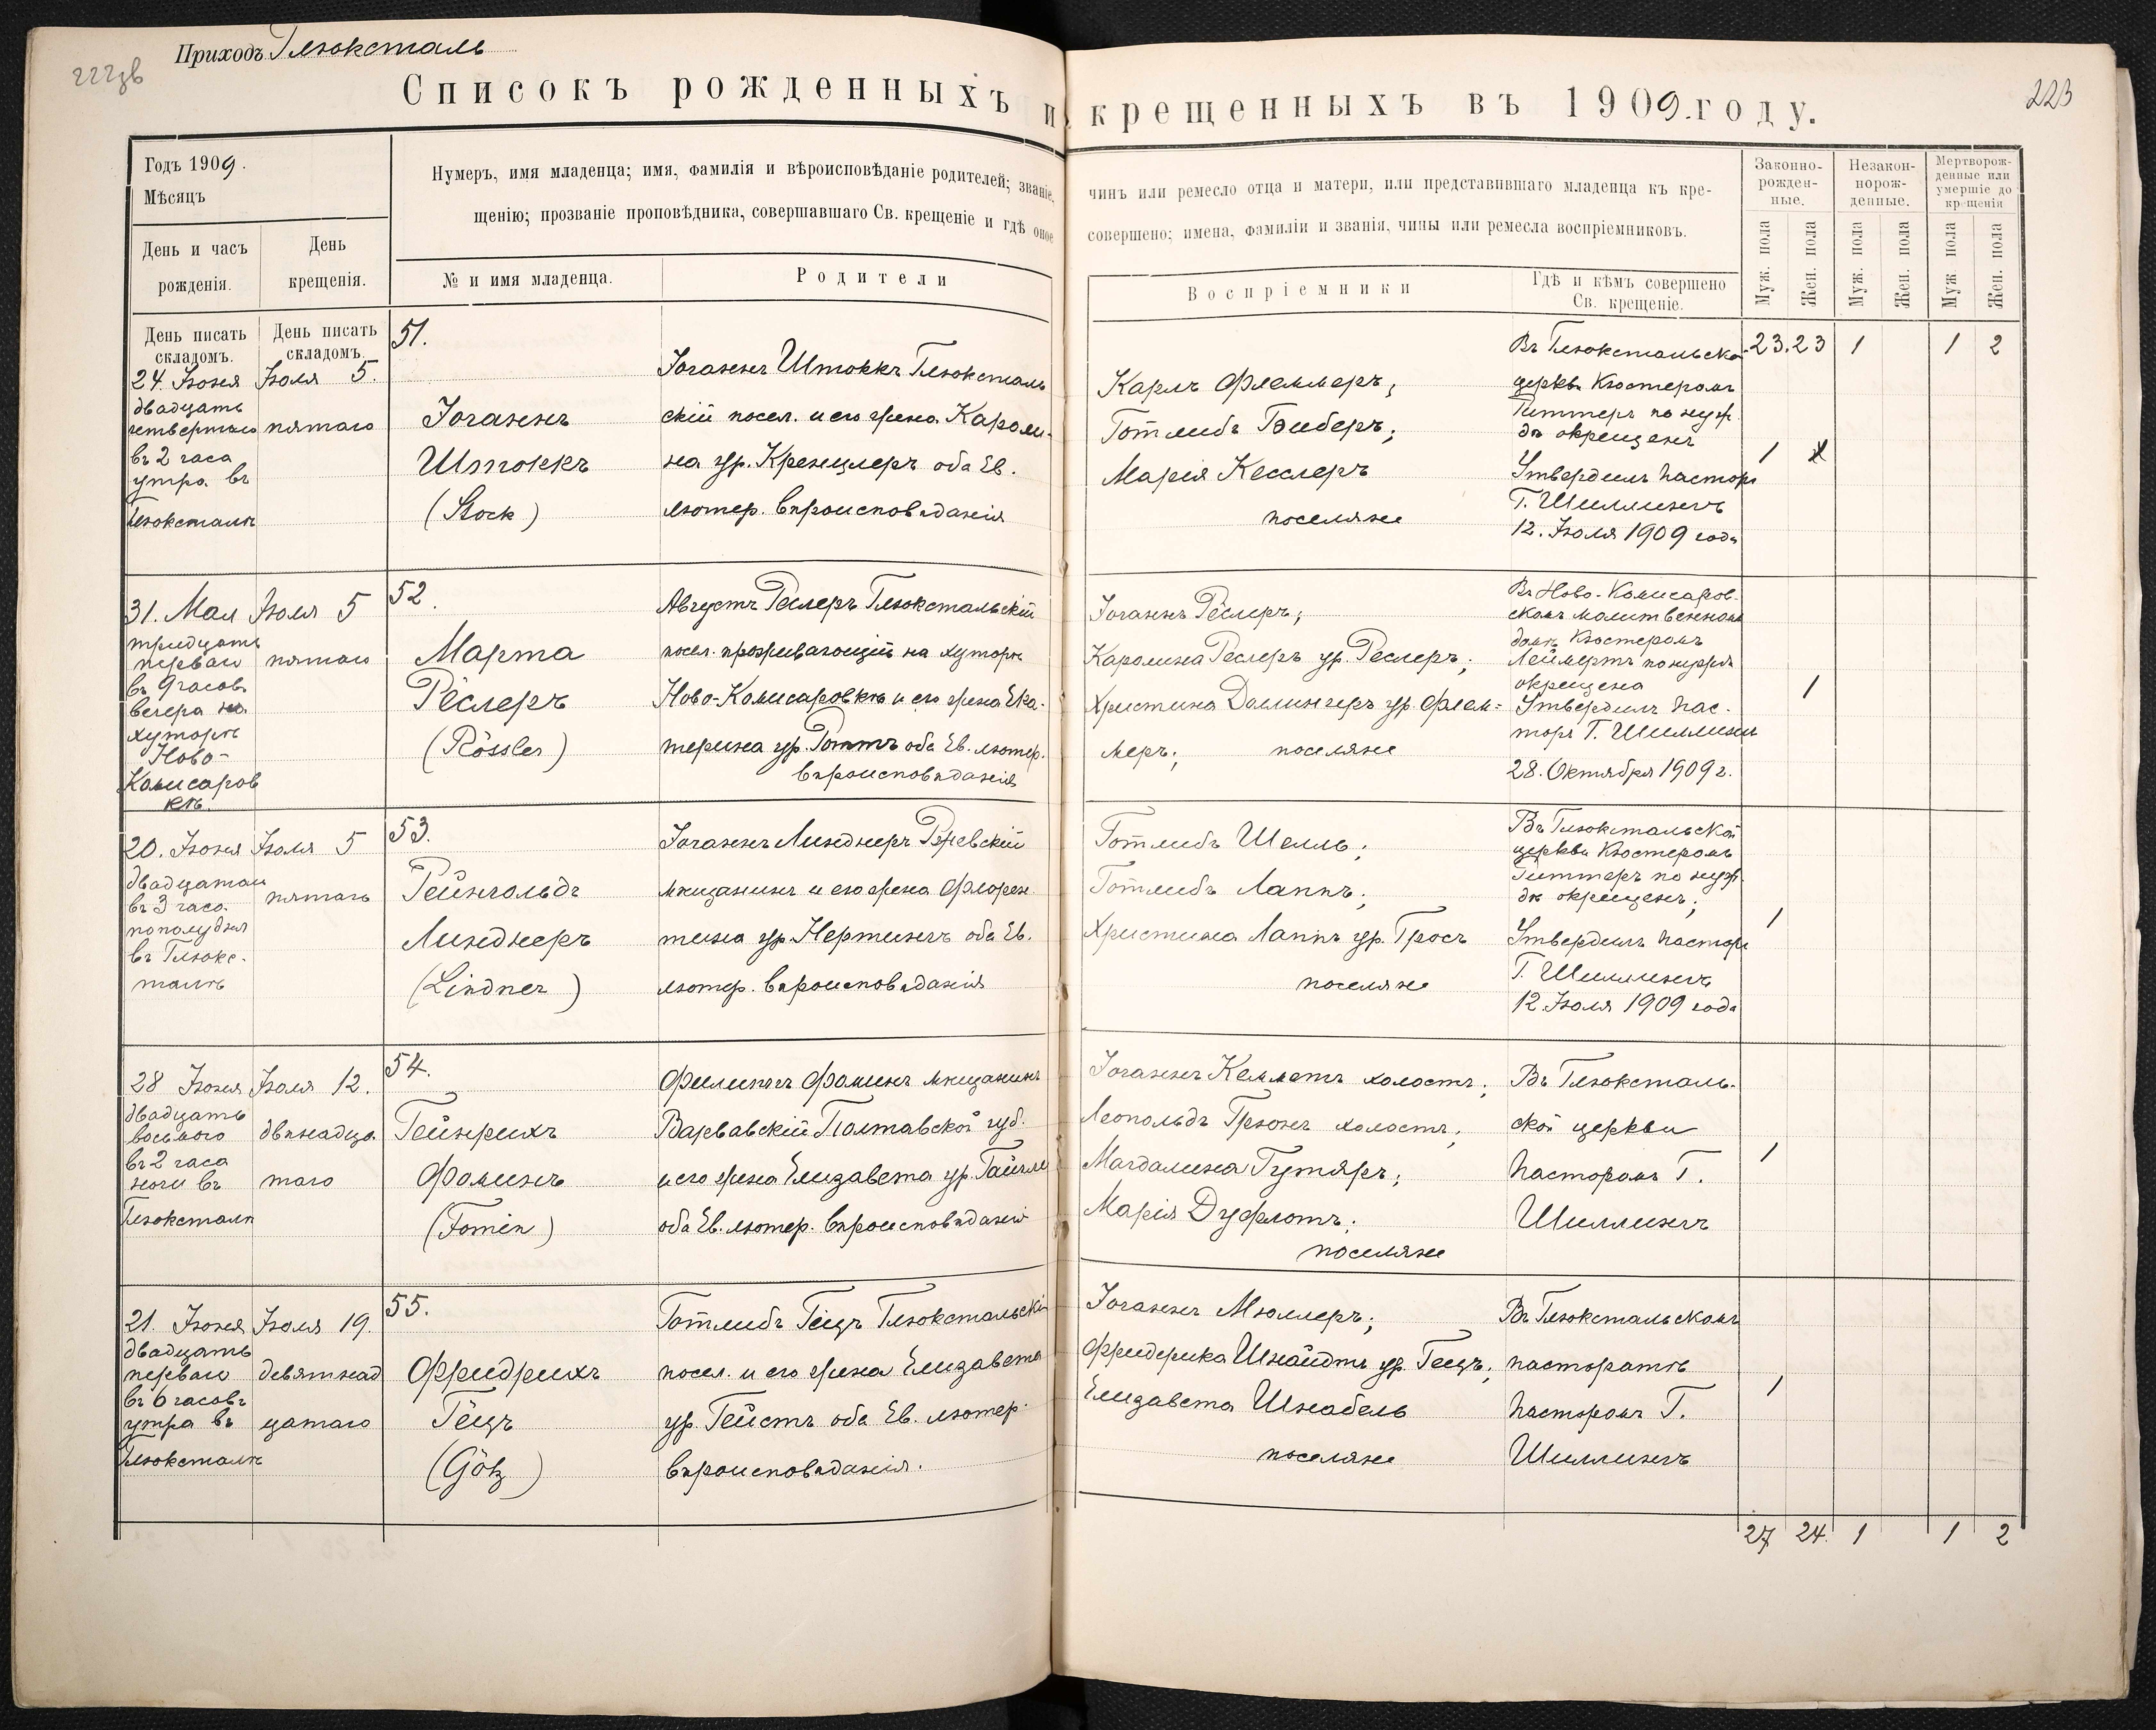 Приходъ Глюксталь
222зв
223
Списокъ рожденныхъ и крещенныхъ въ 1909.году.
Годъ 1909.
Мѣсяцъ
Нумеръ, имя младенца; имя, фамилія и вѣроисповѣданіе родителей; званіе,
чинъ или ремесло отца и матери, или представившаго младенца къ кре-
щенію; прозваніе проповѣдника, совершавшаго Св. крещеніе и гдѣ оное
совершено; имена, фамиліи и званія, чины или ремесла воспріемниковъ.
День и часъ
рожденія.
День
крещенія.
№ и имя младенца.
Родители
Воспріемники
Гдѣ и кѣмъ совершено
Св. крещеніе.
Законно-
рожден-
ные.
Незакон-
норож-
денные.
Мертворож-
денные или
умершіе до
крещенія
Муж. пола
Жен. пола
Муж. пола
Жен. пола
Муж. пола
Жен. пола
День писать
складомъ.
День писать
складомъ.
23. 23 1 1 2
24. Іюня
двадцать
четвертаго
въ 2 часа
утра въ
Глюксталѣ
Іюля 5.
пятаго
51.
Іоганнъ
Штоккъ
(Stock)
Іоганнъ Штоккъ Глюксталь
скій посел. и его жена Кароли-
на ур. Кренцлеръ оба Ев.
лютер. вѣроисповѣданія
Карлъ Флеммеръ;
Готлибъ Биберъ;
Марія Кесслеръ
поселяне
Въ Глюкстальской
церкви Кюстеромъ
Гиттеръ по нуж-
дѣ окрещенъ
Утвердилъ пасторъ
Г. Шиллингъ
12. Іюля 1909 года
1
31. Мая
тридцать
перваго
въ 9 часовъ
вечера на
хуторѣ
Ново-
Комисаров
кѣ.
Іюля 5
пятаго
52.
Марта
Рёслеръ
(Rössler)
Августъ Рёслеръ Глюкстальскій
посел. проживающій на хуторѣ
Ново-Комисаровкѣ и его жена Ека-
терина ур. Роттъ оба Ев. лютер.
вѣроисповѣданія
Іоганнъ Рёслеръ;
Каролина Реслеръ ур. Реслеръ;
Христина Доллингеръ ур. Флем-
меръ; поселяне
Въ Ново-Комисаров-
скомъ молитвенномъ
домѣ Кюстеромъ
по нуждѣ
окрещена
Утвердилъ пас-
торъ Г. Шиллингъ
28. Октября 1909 г.
1
20. Іюня
двадцатаго
въ 3 часа
пополудня
въ Глюкс-
талѣ
Іюля 5
пятаго
53.
Рейнгольдъ
Линднеръ
(Lindner)
Іоганнъ Линднеръ
мѣщанинъ и его жена Флорен
тина ур. Нертингъ оба Ев.
лютер. вѣроисповѣданія
Готлибъ Шелль;
Готлибъ Лаппъ;
Христина Лаппъ ур. Гросъ
поселяне
Въ Глюкстальской
церкви Кюстеромъ
Гиттеръ по нуж-
дѣ окрещенъ;
Утвердилъ пасторъ
Г. Шиллингъ
12. Іюля 1909 года
1
28 Іюня
двадцать
восьмого
въ 2 часа
ночи въ
Глюксталѣ
Іюля 12.
двѣнадца
таго
54.
Гейнрихъ
Фоминъ
(Fomin)
Филиппъ Фоминъ мѣщанинъ
Варвавскій Полтавской губ.
и его жена Елизавета ур.
оба Ев. лютер. вѣроисповѣданія
Іоганнъ Кемметъ холостъ;
Леопольдъ Грюнъ холостъ;
Магдалина Гутяръ;
Марія Дуфлотъ;
поселяне
Въ Глюксталь-
ской церкви
пасторомъ Г.
Шиллингъ
1
21. Іюня
двадцать
перваго
въ 6 часовъ
утра въ
Глюксталѣ
Іюля 19.
девятнад
цатаго
55.
Фридрихъ
Гёцъ
(Götz)
Готлибъ Гецъ Глюкстальскій
посел. и его жена Елизавета
ур. Гейстъ оба Ев. лютер.
вѣроисповѣданія.
Іоганнъ Мюллеръ;
Фридерика Шнайдтъ ур. Гецъ;
Елизавета Шнабель
поселяне
Въ Глюкстальскомъ
пасторатѣ
пасторомъ Г.
Шиллингъ
1
27 24. 1 1 2